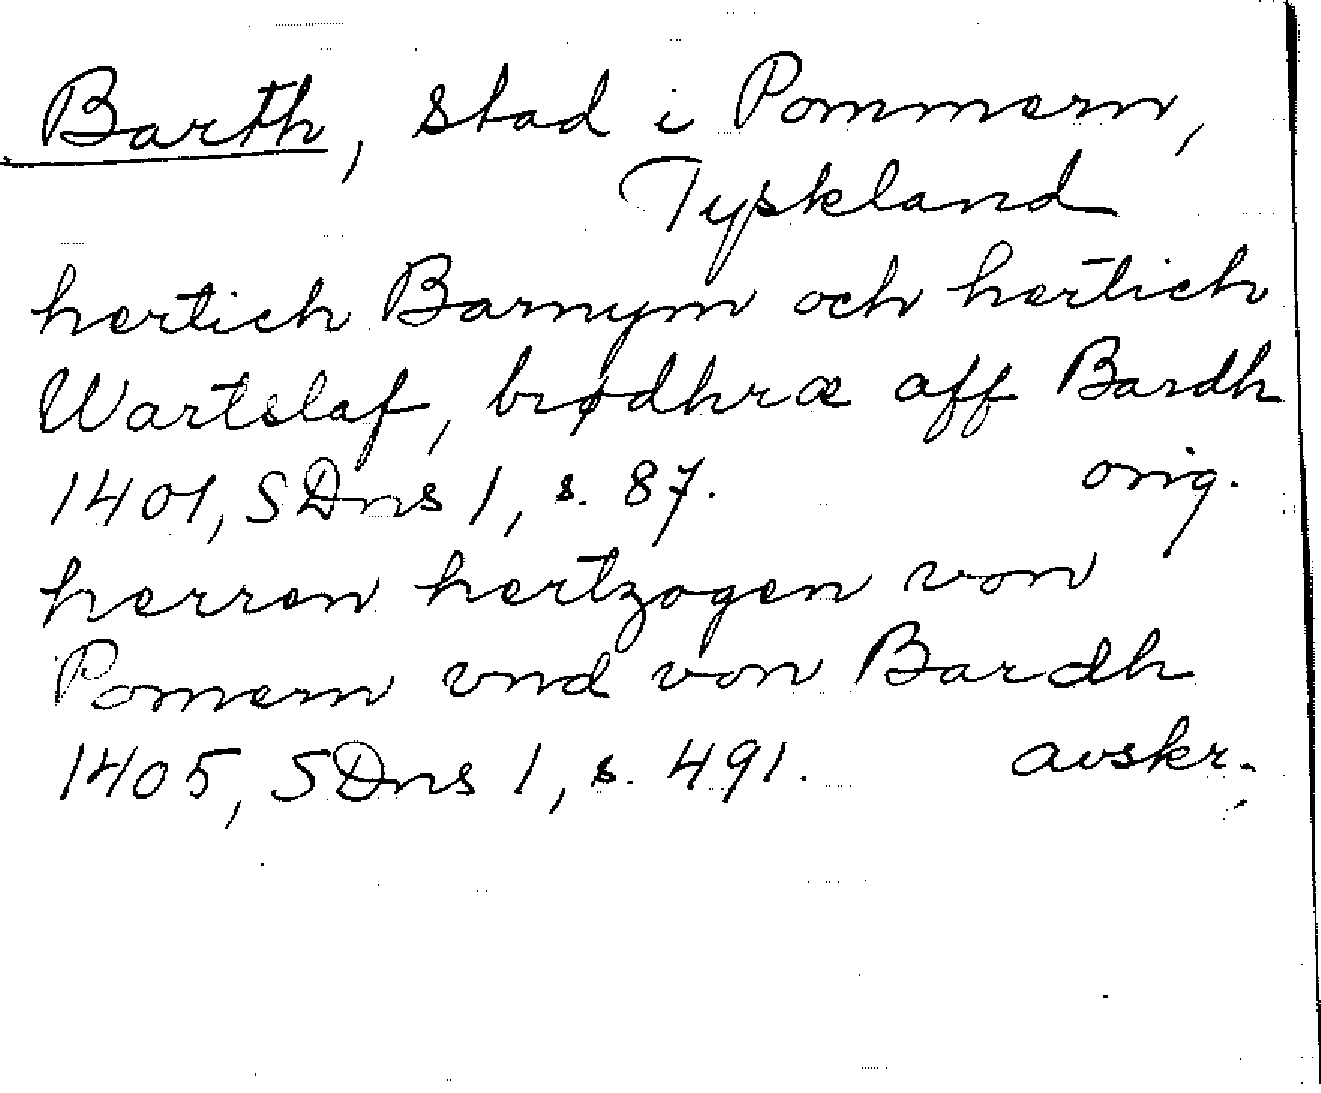 Barth, stad i Pommern,
Tyskland
hertich Barnym och hertich
Wartslaf, brødhræ aff Bardh
1401, SDns 1, s. 87. orig.
herren hertzogen von
Pomern vnd von Bardh
1405, SDns 1, s. 491. avskr.